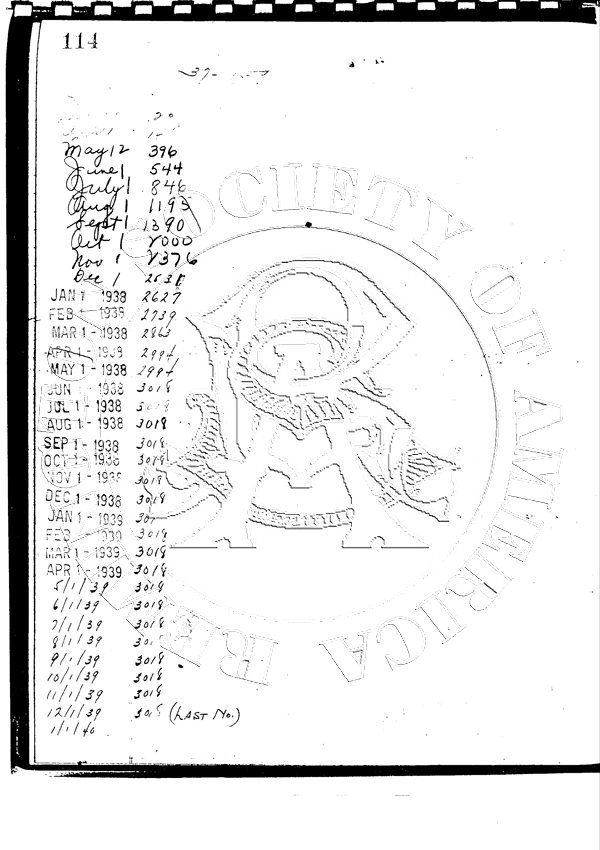 114
May 12 396
June 1 544
July 1 846
Aug 1 1195
Sept 1 1390
Oct 1 2000
Nov 1 2376
Dec 1
JAN 1 1938 2627
FEB 1 1938 2739
MAR 1 - 1938 2863
APR 1 - 1938 2994
MAY 1 - 1938 2994
JUN 1 1938 3018
JUL 1 - 1938 3018
AUG 1 - 1938 3018
SEP 1 - 1938 3018
OCT 1 - 1938 3018
NOV 1 - 1938 3018
DEC 1 - 1938 3018
JAN 1 1939 3018
FEB 1939 3018
MAR 1 - 1939 3018
APR 1 - 1939 3018
5/1/39 3018
6/1/39 3018
7/1/39 3018
8/1/39 3018
9/1/39 3018
10/1/39 3018
11/1/39 3018
12/1/39 3018 (LAST No.)
1/1/40
SOCIETY OF AMERICA